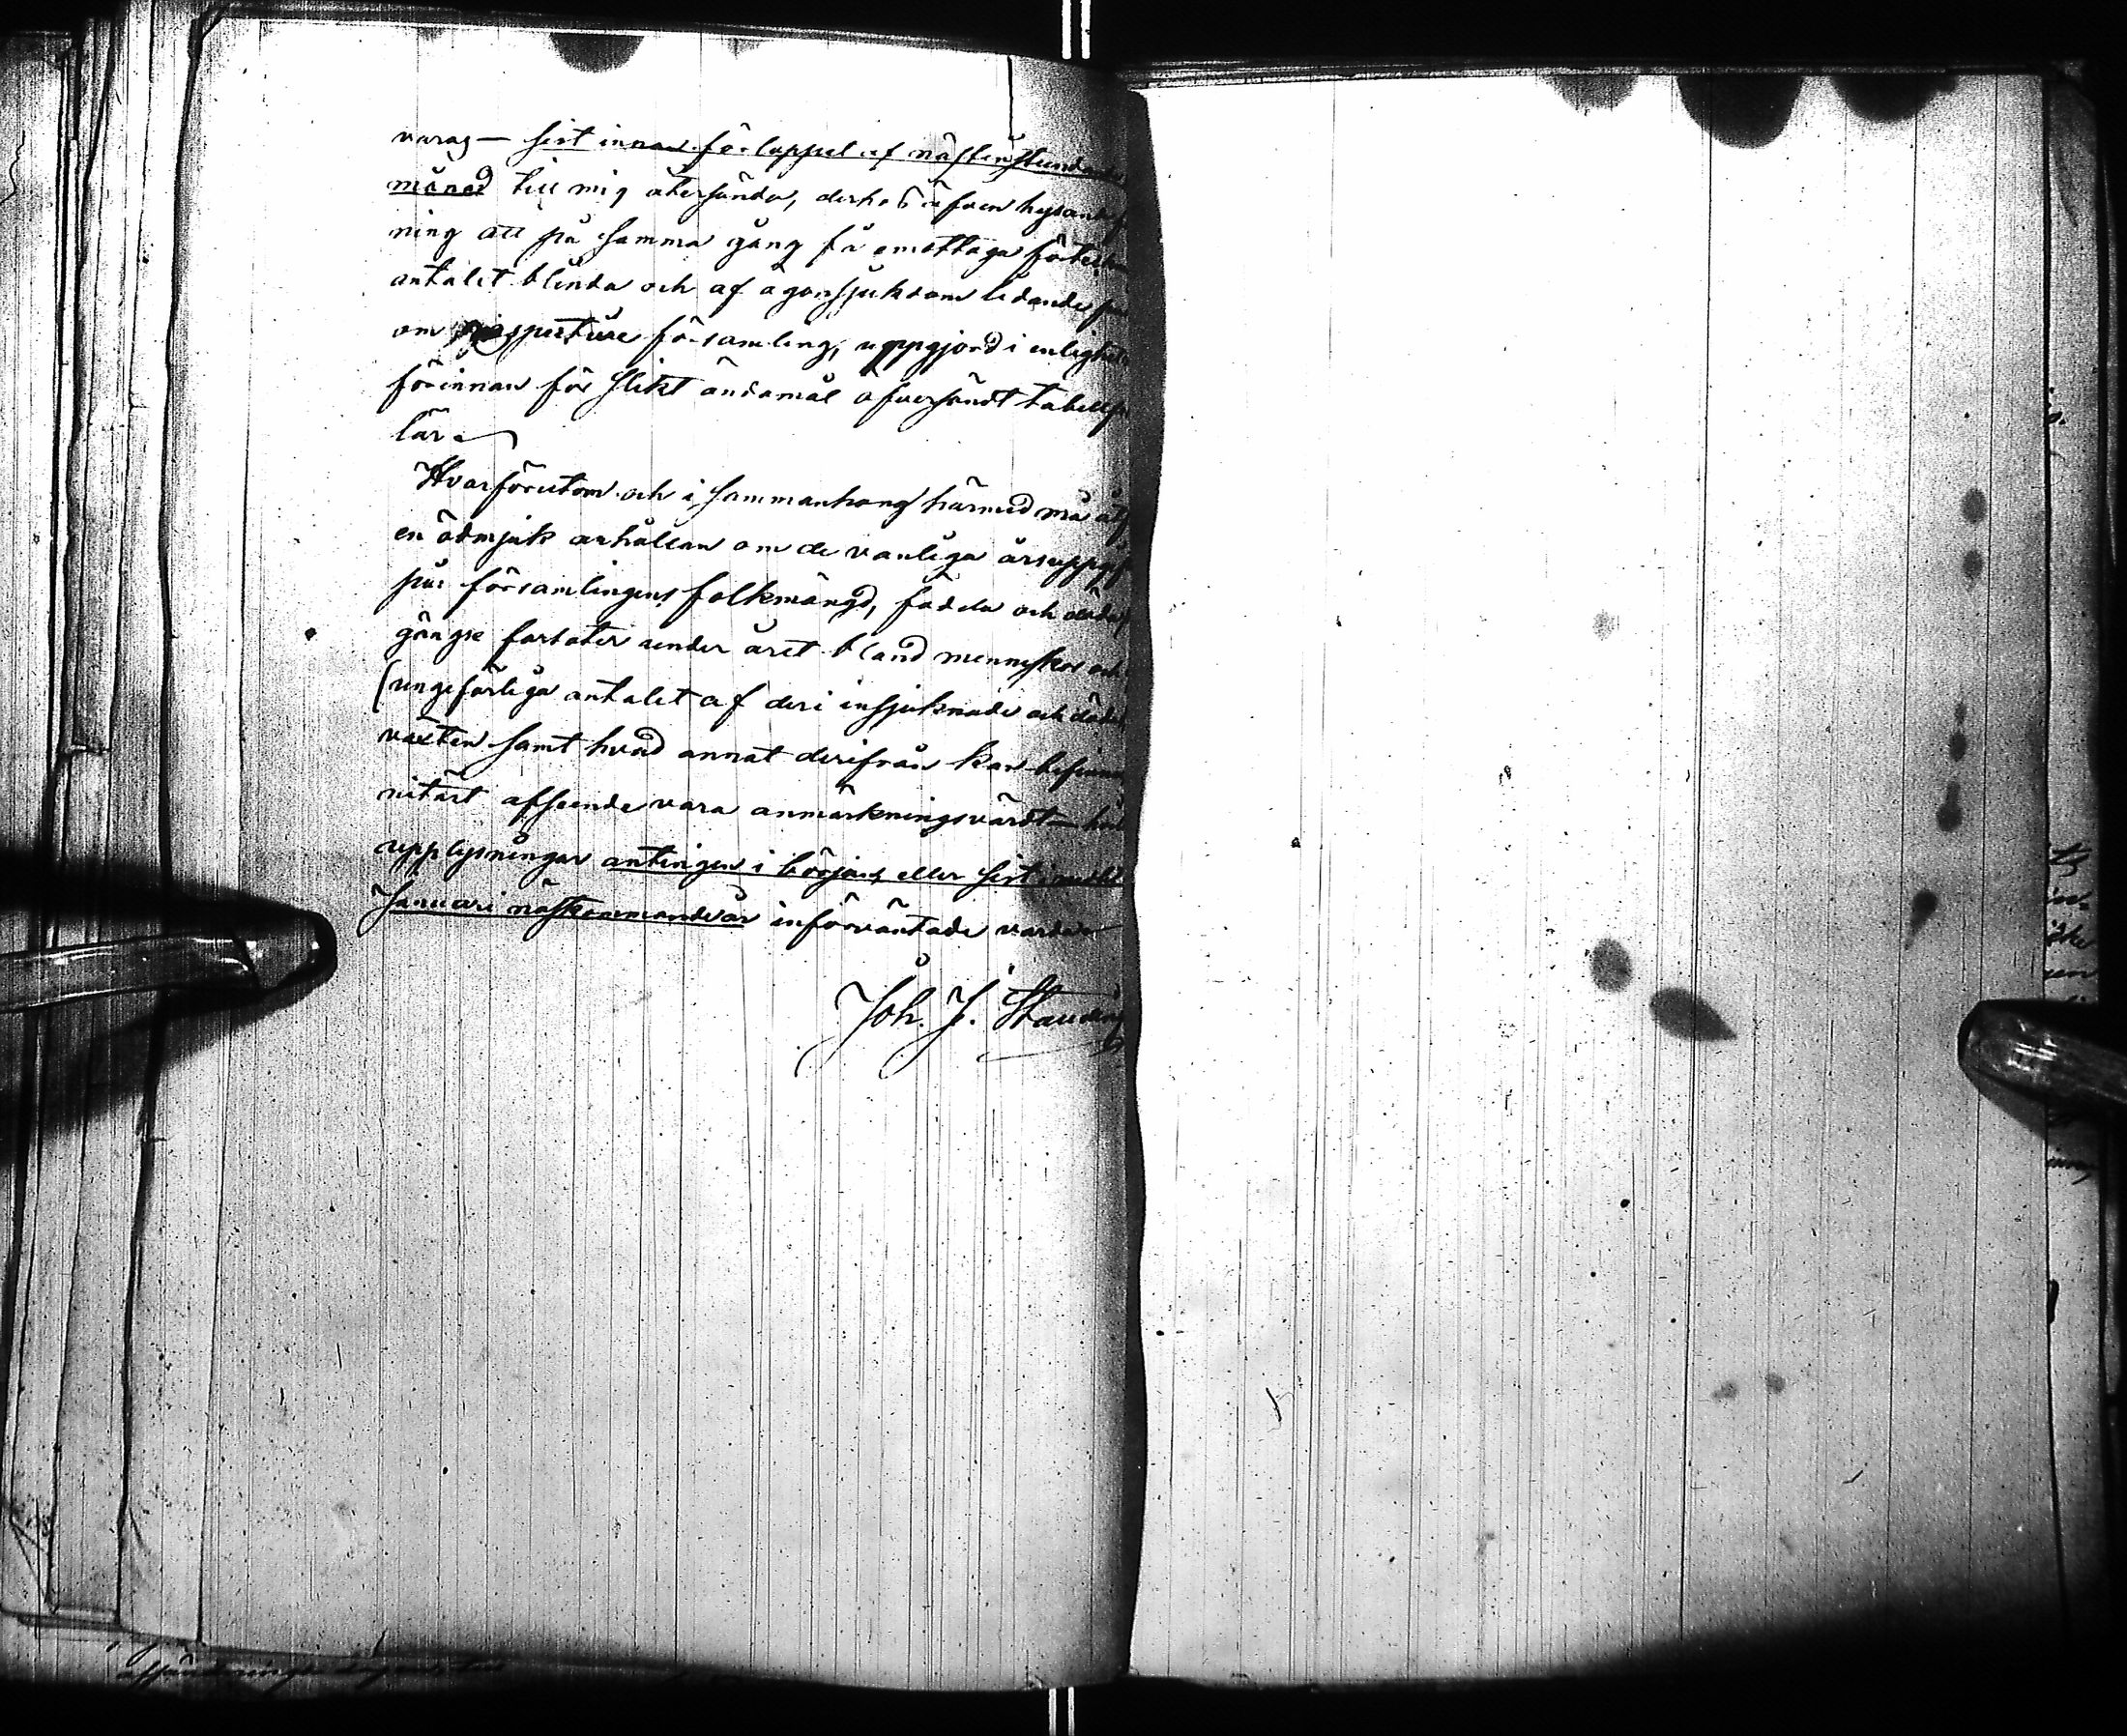 varas — sist innan förloppet af nästinstundande
månad till mig återsända, derhos äfven hysande
ning att på samma gång få emottaga förteck
antalet blinda och af ögonsjukdom lidande
om respective församling, uppgjord i enlighet
förinnan för slikt ändamål öfversändt tabell
lär.
Hvarförutom och i sammanhang härmed må
en ödmjuk anhållan om de vanliga årsuppgif
på: församlingens folkmängd, födda och döda,
gångse farsoter under året bland menniskor och
(ungefärliga antalet af deri insjuknade och döda
växten samt hvad annat derifrån kan befinn
nitärt afseende vara anmärkningsvärdt —
upplysningar antingen i början eller sist i
Januari nästkommande år införväntade varda
Joh. J.